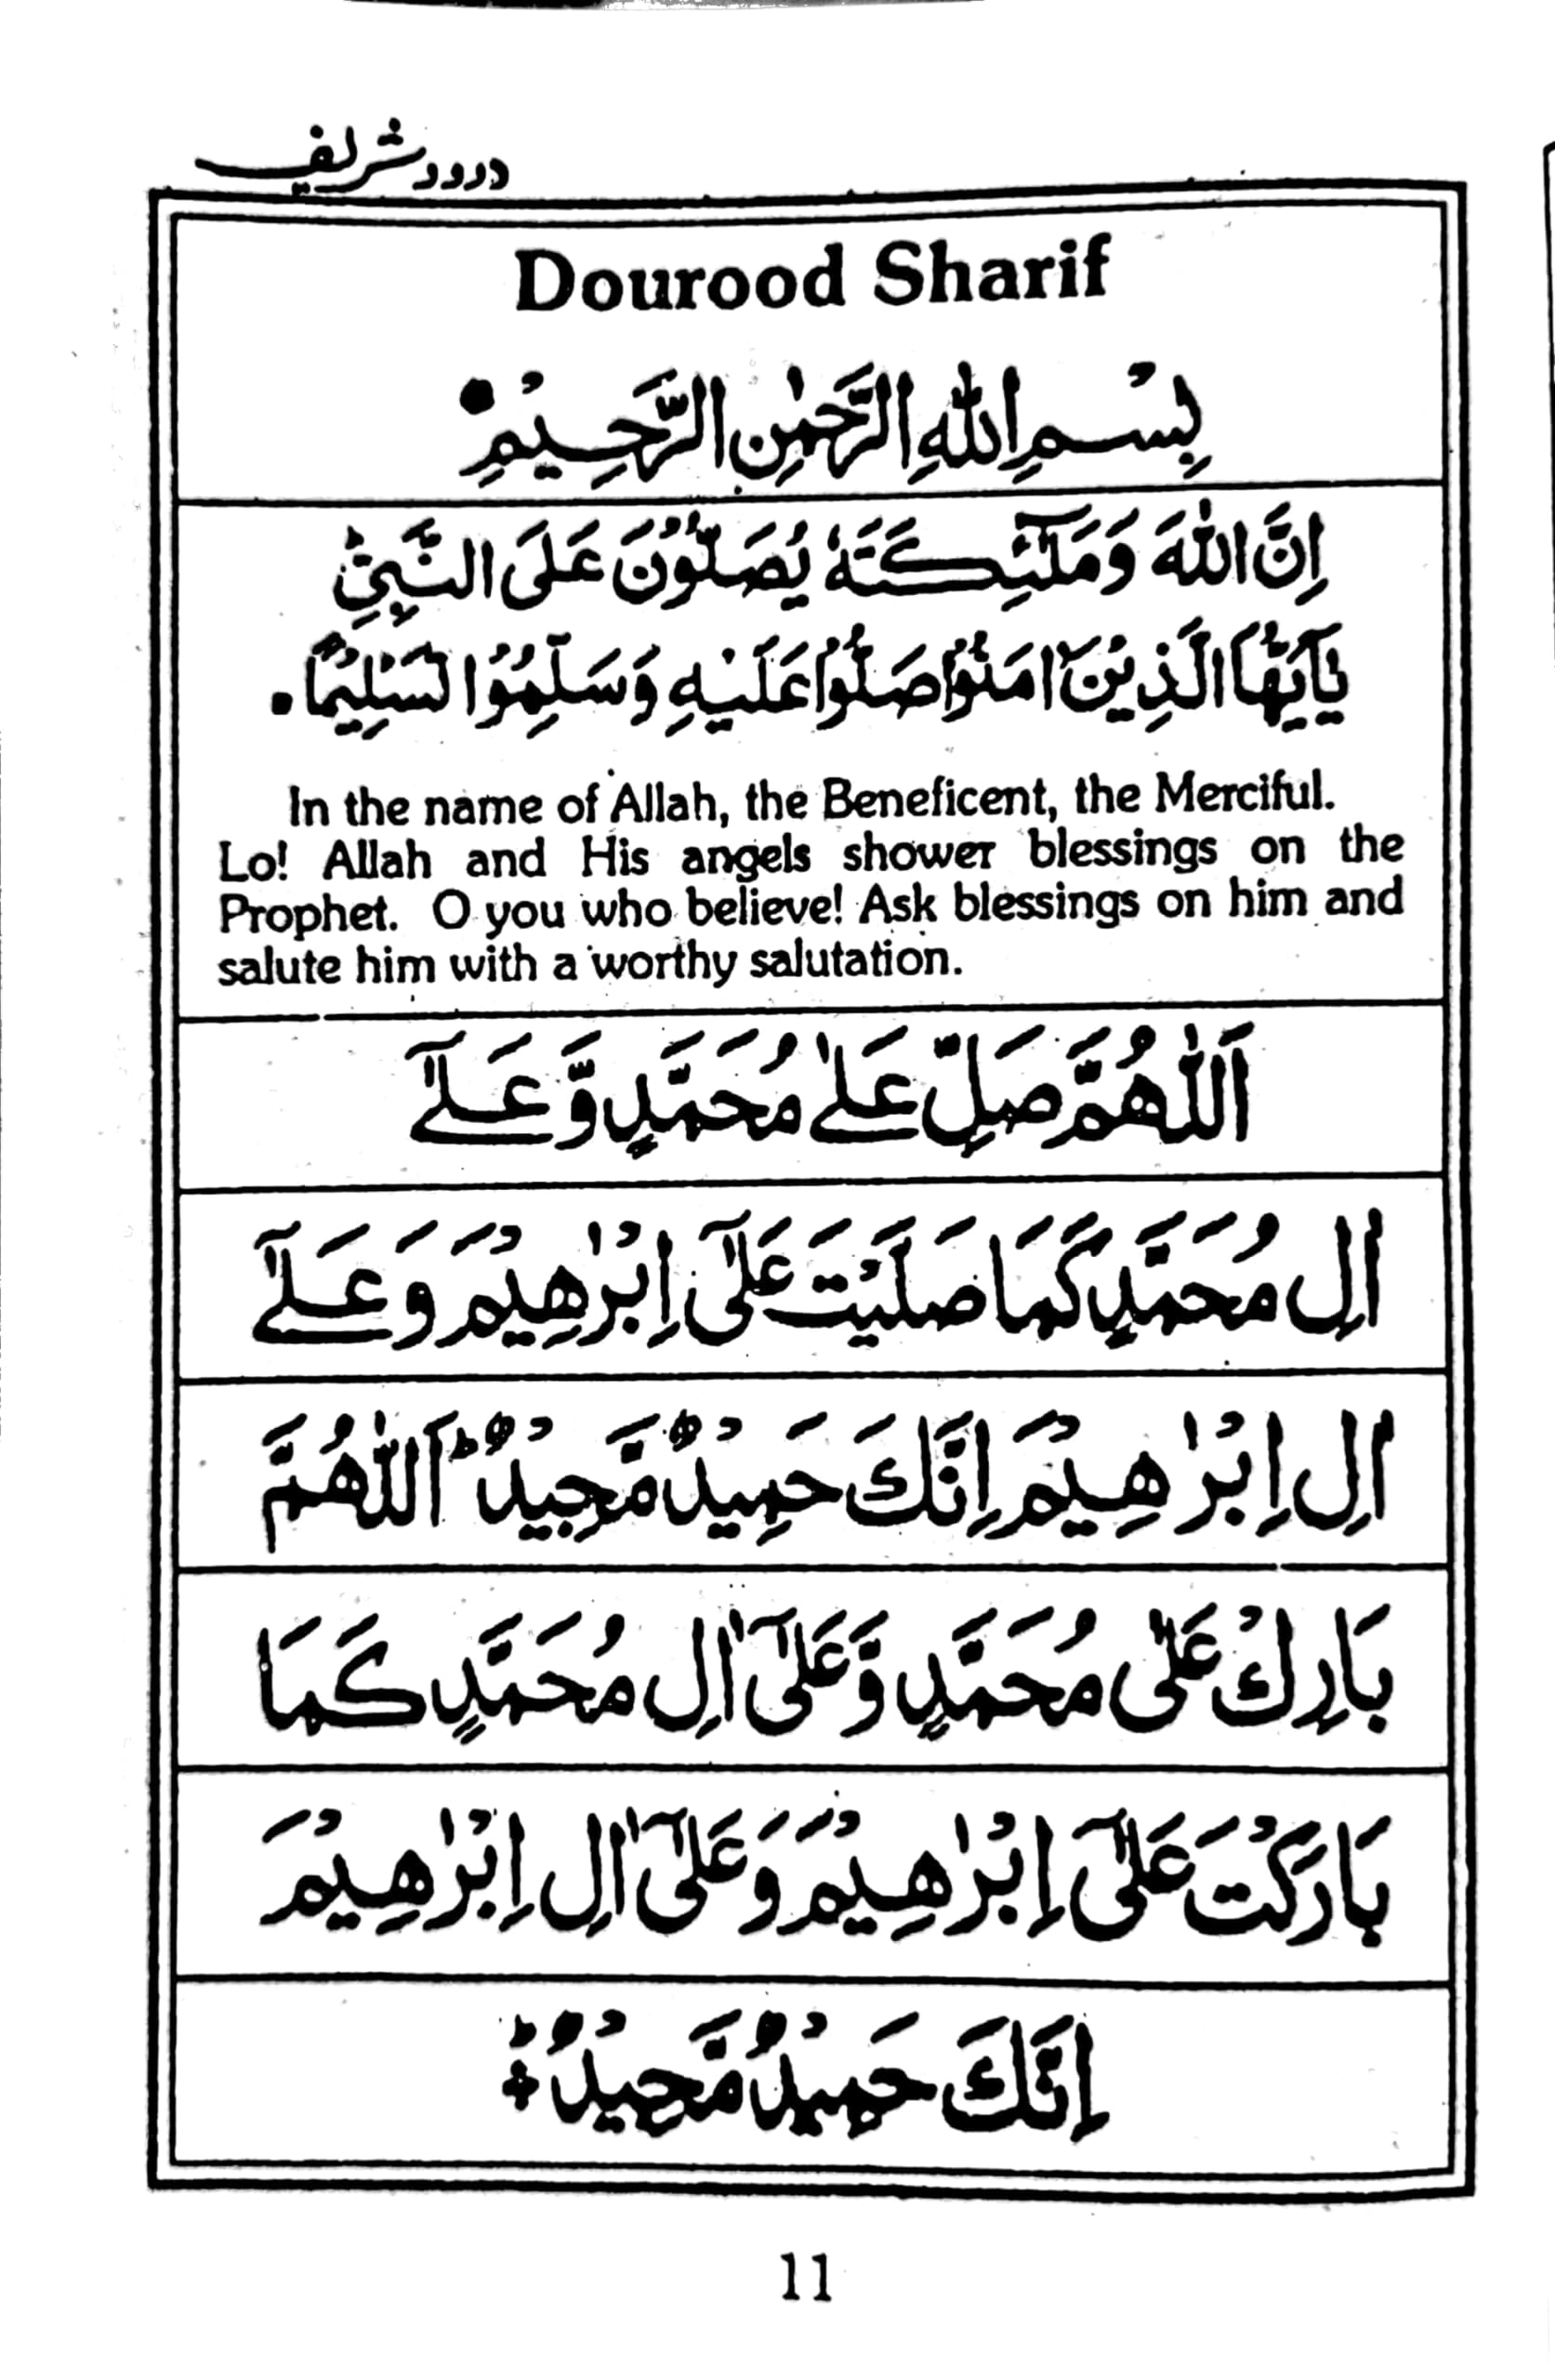 درود شریف
Dourood Sharif
بِسْمِ اللّٰهِ الرَّحْمٰنِ الرَّحِيْمِ
اِنَّ اللّٰهَ وَمَلٰٓئِكَتَهٗ يُصَلُّوْنَ عَلَى النَّبِيِّ ؕ
يٰۤاَيُّهَا الَّذِيْنَ اٰمَنُوْا صَلُّوْا عَلَيْهِ وَسَلِّمُوْا تَسْلِيْمًا ۰
In the name of Allah, the Beneficent, the Merciful.
Lo! Allah and His angels shower blessings on the
Prophet. O you who believe! Ask blessings on him and
salute him with a worthy salutation.
اَللّٰهُمَّ صَلِّ عَلٰى مُحَمَّدٍ وَّعَلٰٓى
اٰلِ مُحَمَّدٍ كَمَا صَلَّيْتَ عَلٰٓى اِبْرٰهِيْمَ وَعَلٰٓى
اٰلِ اِبْرٰهِيْمَ اِنَّكَ حَمِيْدٌ مَّجِيْدٌ ؕ اَللّٰهُمَّ
بَارِكْ عَلٰى مُحَمَّدٍ وَّعَلٰٓى اٰلِ مُحَمَّدٍ كَمَا
بَارَكْتَ عَلٰٓى اِبْرٰهِيْمَ وَعَلٰٓى اٰلِ اِبْرٰهِيْمَ
اِنَّكَ حَمِيْدٌ مَّجِيْدٌ ؕ
11